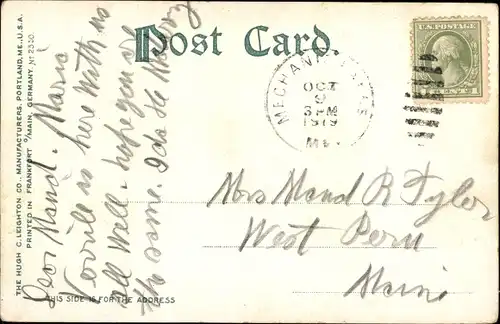 THE HUGH C. LEIGHTON CO., MANUFACTURERS, PORTLAND, ME., U.S.A.
PRINTED IN FRANKFORT O/MAIN, GERMANY. No 2330.
Post Card.
MECHANIC FALLS
OCT
9
3 PM
1919
ME.
Dear Maud.
is here with us
all well. hope you are
the same. Ida
THIS SIDE IS FOR THE ADDRESS
Mrs Maud R Tyler
West Peru
Maine